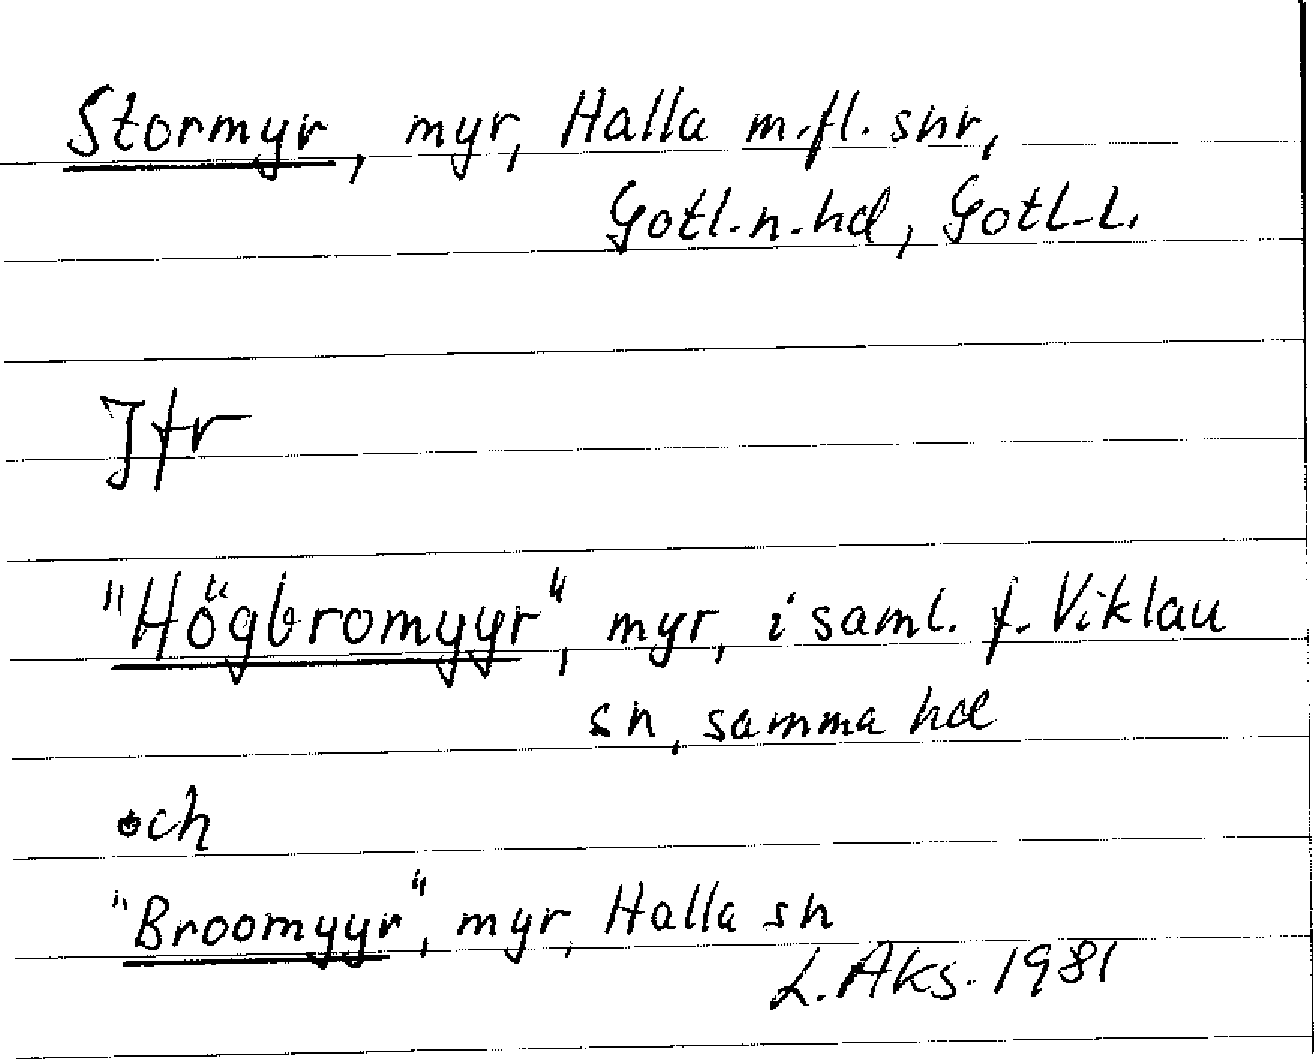 Stormyr, myr, Halla m.fl. snr,
Gotl.n.hd, Gotl.L.
Jfr
"Högbromyyr", myr, i saml. f. Viklau
sn, samma hd
och
"Broomyyr", myr, Halla sn
L. Aks. 1981